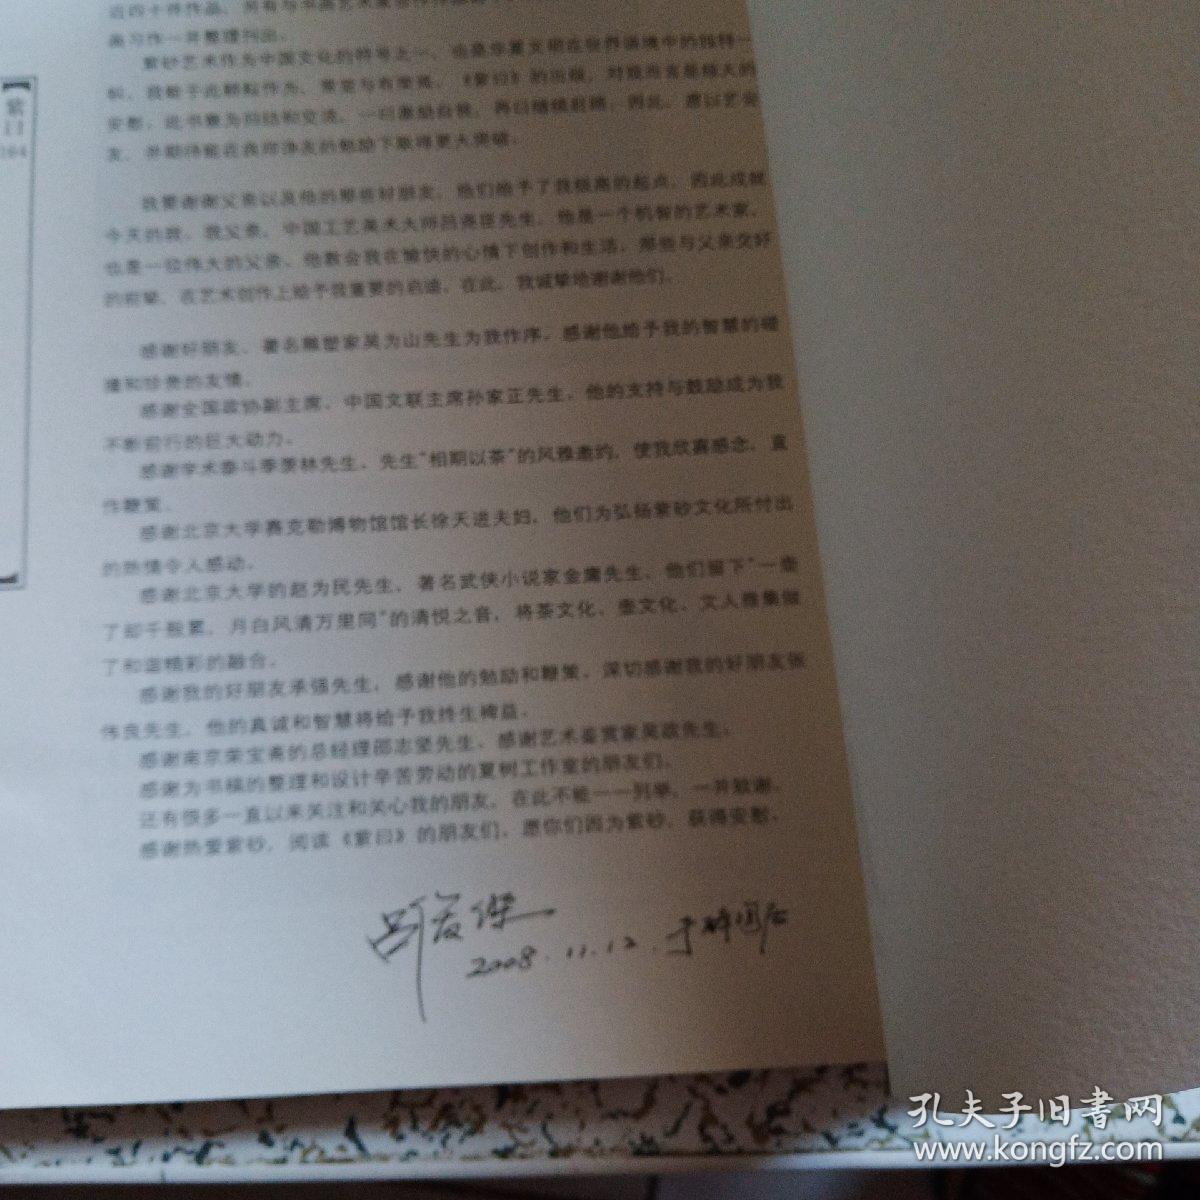 近四十件作品，另有与书画艺术家合作
画习作一并整理刊出。
紫砂艺术作为中国文化的符号之一，也是华夏文明在世界语境中的独特一
帜，我能于此耕耘作为，常觉与有荣焉，《紫曰》的出版，对我而言是极大的
安慰，此书意为归结和交流，一曰激励自我，再曰继续赶路，因此，愿以艺会
友，并期待能在良师诤友的勉励下取得更大突破。
我要谢谢父亲以及他的那些好朋友，他们给予了我极高的起点，因此成就
今天的我。我父亲，中国工艺美术大师吕尧臣先生，他是一个机智的艺术家，
也是一位伟大的父亲，他教会我在愉快的心情下创作和生活，那些与父亲交好
的前辈，在艺术创作上给予我重要的启迪，在此，我诚挚地谢谢他们。
感谢好朋友、著名雕塑家吴为山先生为我作序，感谢他给予我的智慧的碰
撞和珍贵的友情。
感谢全国政协副主席、中国文联主席孙家正先生，他的支持与鼓励成为我
不断前行的巨大动力。
感谢学术泰斗季羡林先生，先生“相期以茶”的风雅邀约，使我欣喜感念，直
作鞭策。
感谢北京大学赛克勒博物馆馆长徐天进夫妇，他们为弘扬紫砂文化所付出
的热情令人感动。
感谢北京大学的赵为民先生、著名武侠小说家金庸先生，他们留下“一壶
了却千般累，月白风清万里同”的清悦之音，将茶文化、壶文化、文人雅集做
了和谐精彩的融合。
感谢我的好朋友承强先生，感谢他的勉励和鞭策，深切感谢我的好朋友张
伟良先生，他的真诚和智慧将给予我终生裨益。
感谢南京荣宝斋的总经理邵志坚先生、感谢艺术鉴赏家吴政先生。
感谢为书稿的整理和设计辛苦劳动的夏树工作室的朋友们。
还有很多一直以来关注和关心我的朋友，在此不能一一列举，一并致谢。
感谢热爱紫砂，阅读《紫曰》的朋友们，愿你们因为紫砂，获得安慰。
吕俊杰
2008.11.12.于
【紫曰 164】
孔夫子旧书网
www.kongfz.com